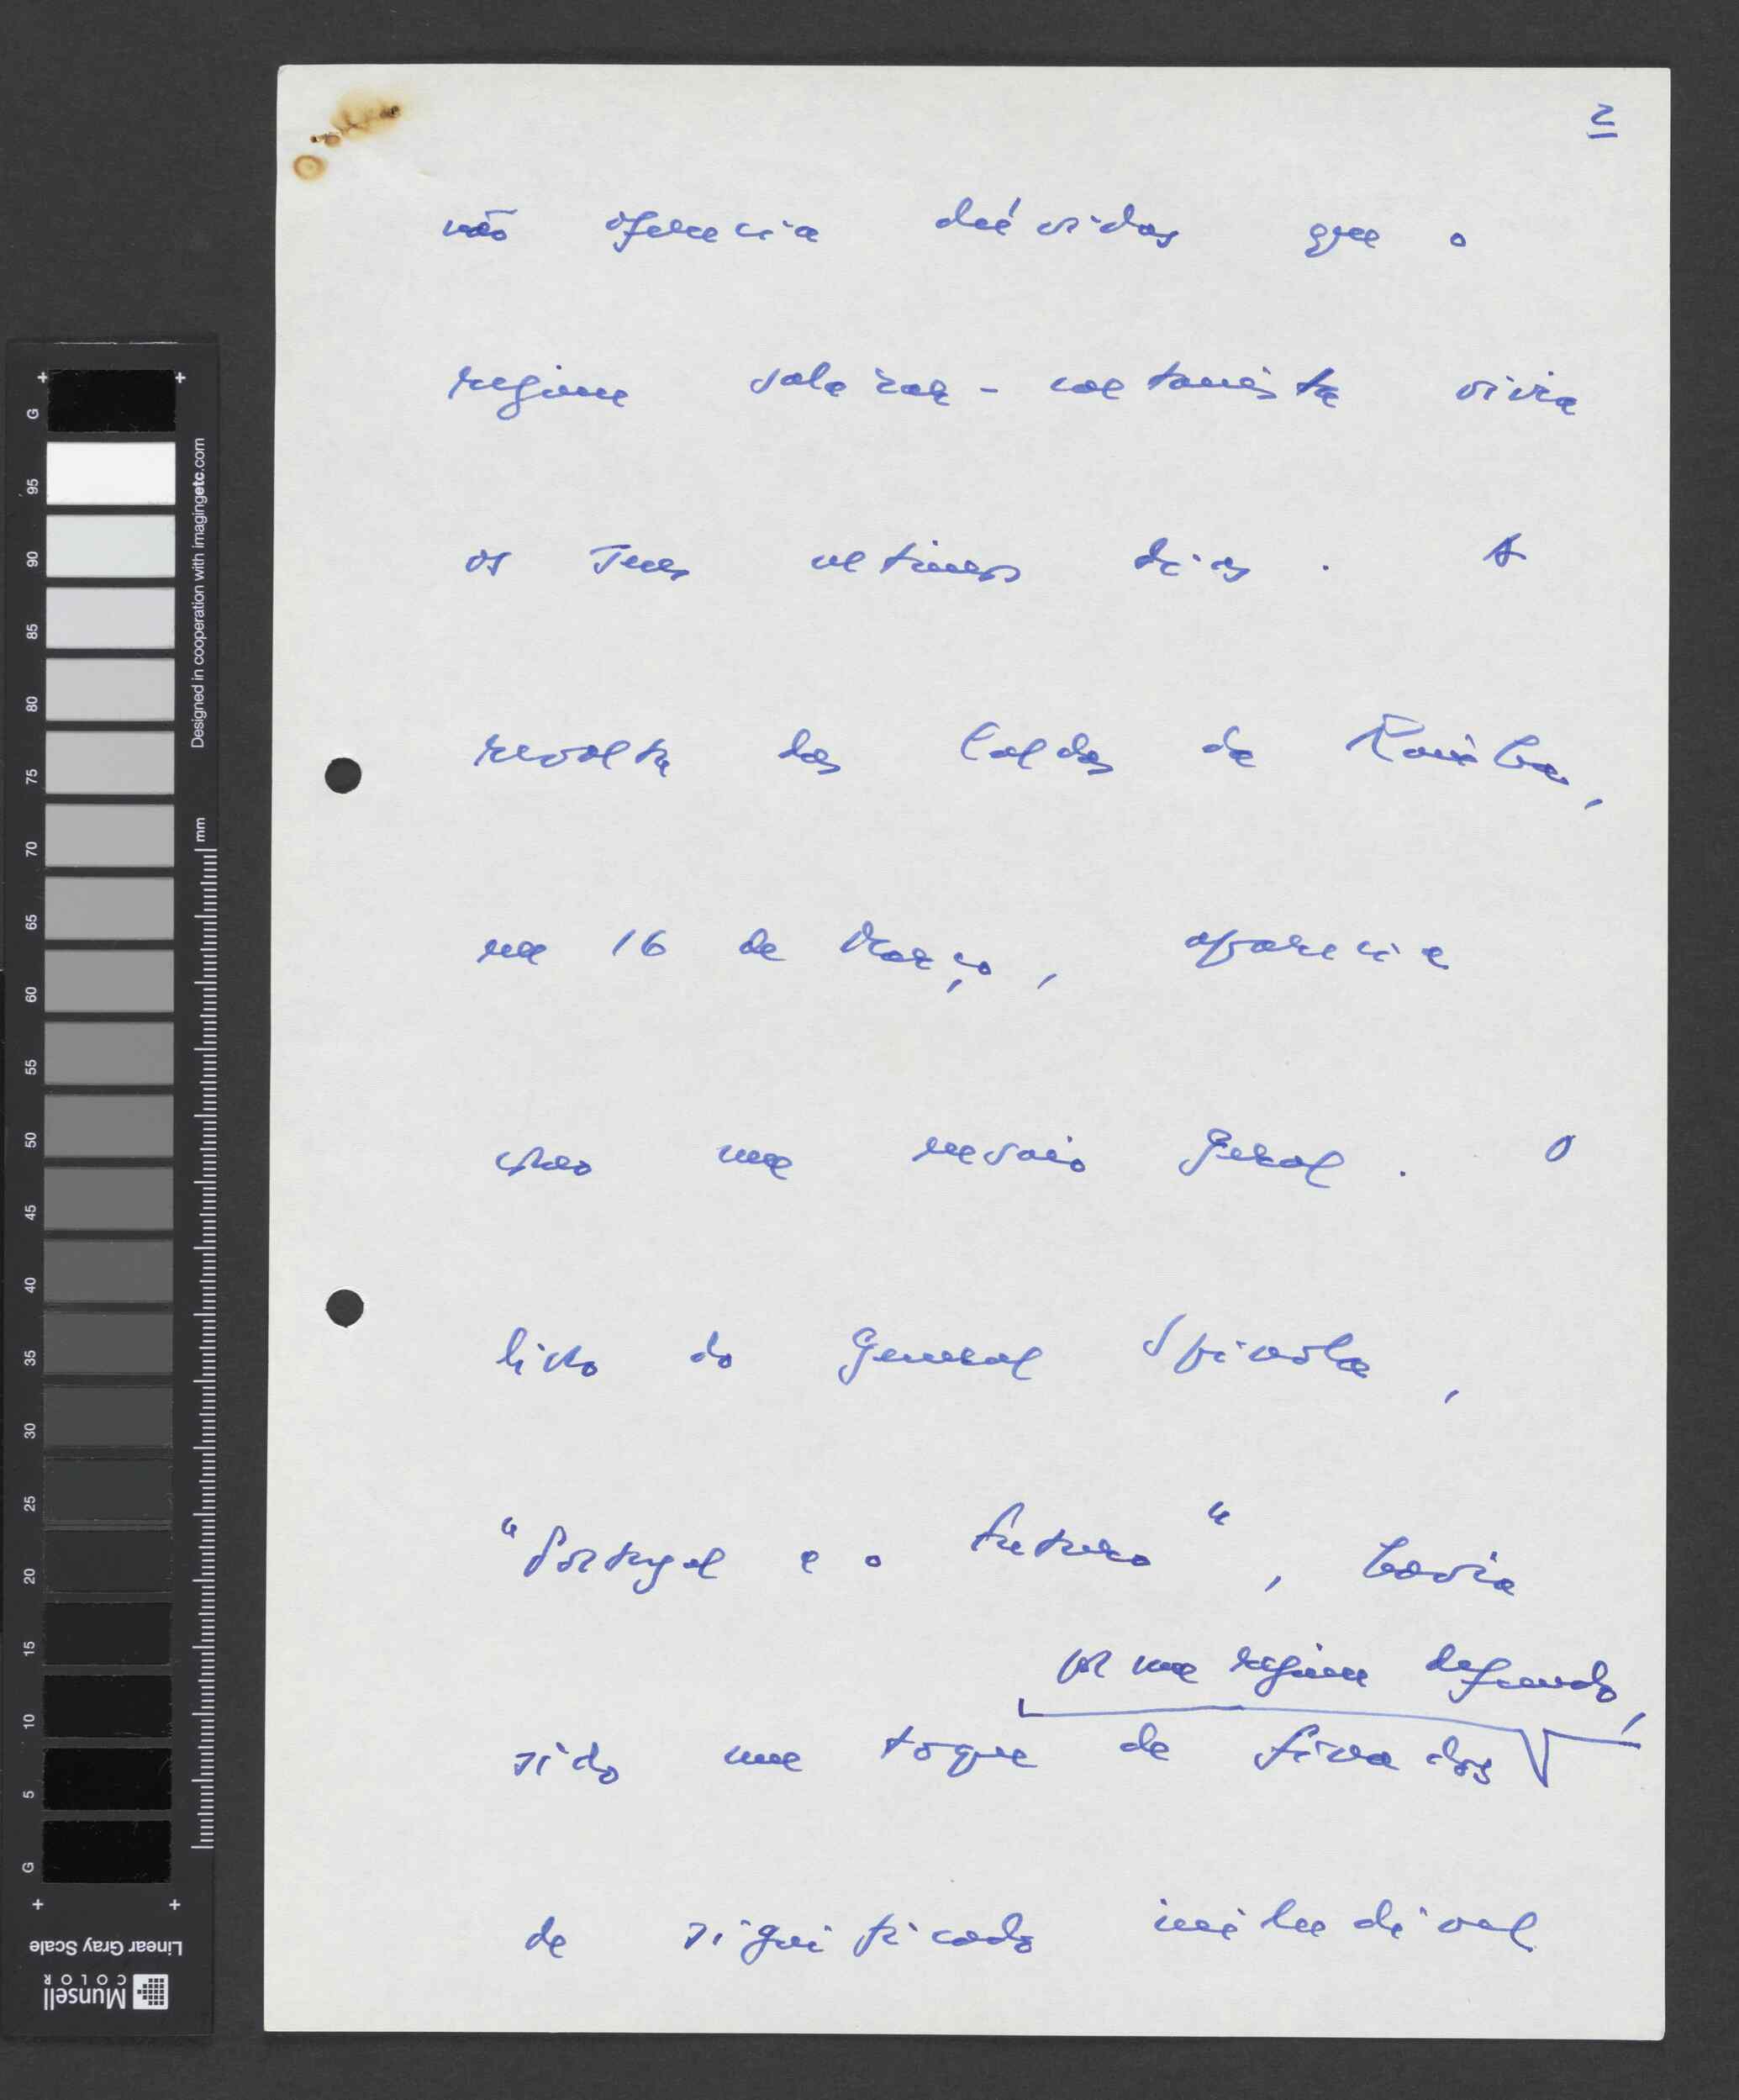 2
não oferecia dúvidas que o
regime salazar-caetanista vivia
os seus ultimos dias. A
revolta das Caldas da Rainha,
em 16 de Março, aparecia
como um ensaio geral. O
livro do General Spínola,
"Portugal e o Futuro", havia
por um regime defunto,
sido um toque de finados
de significado iniludivel
G
95
90
85
80
75
70
65
60
55
50
45
40
35
30
25
20
15
10
5
G
Designed in cooperation with imagingetc.com
mm
Linear Gray Scale
Munsell
COLOR